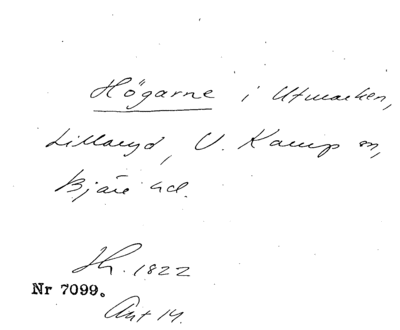 Högarne i Utmarken,
Lillaryd, V. Karup sn,
Bjäre hd.
Sh. 1822
Nr 7099.
Ant 14.